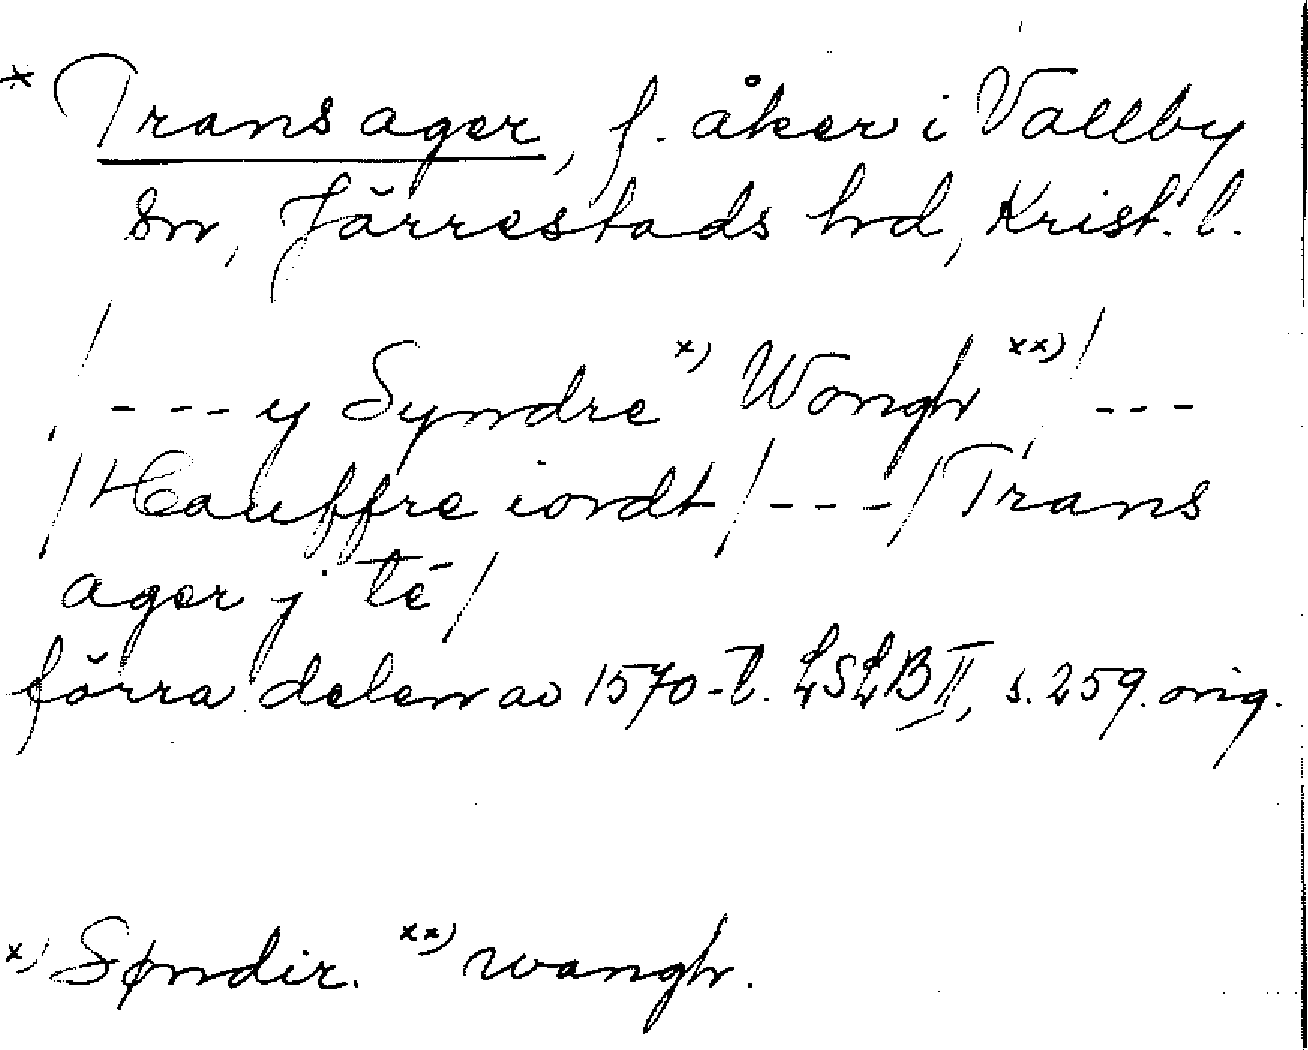 * Trans ager, f. åker i Vallby
sn, Järrestads hd, Krist. l.
/ --- y Syndre x) Wongh xx) / ---
/ Hauffre iordt / --- / Trans
ager j té /
förra delen av 1570-t. LSLB II, s. 259. orig.
x) Søndir. xx) wangh.